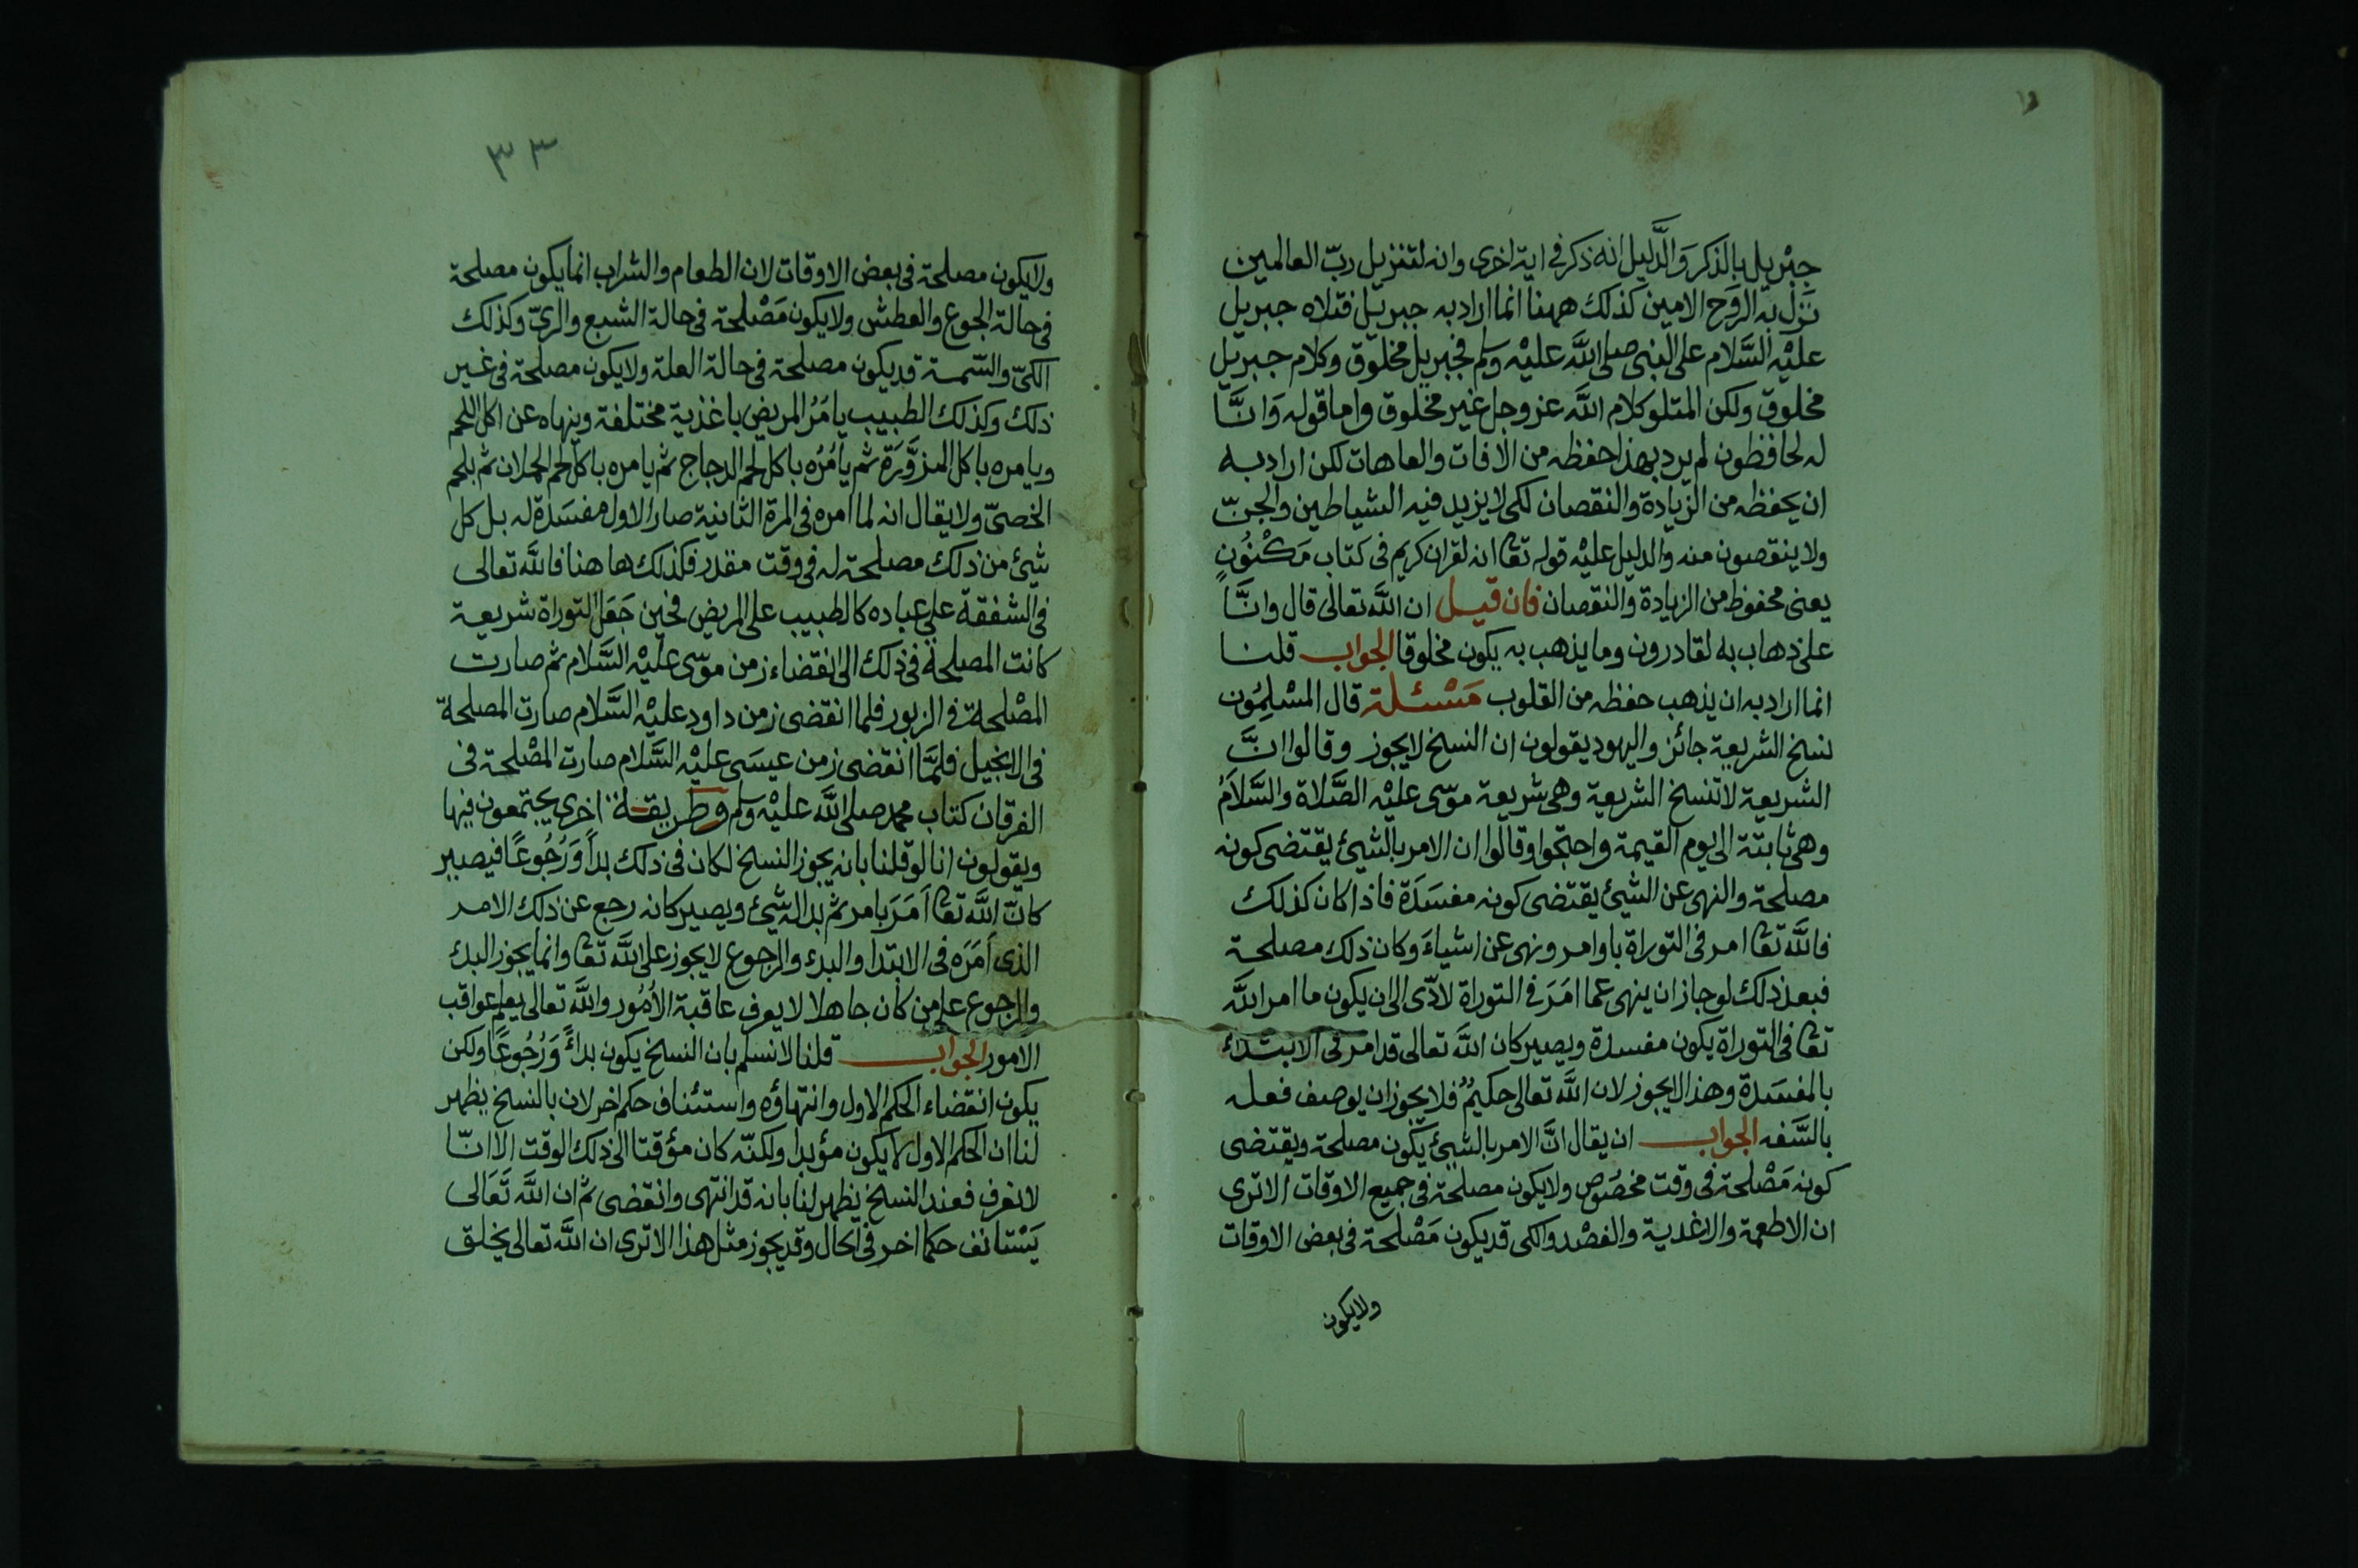 جِبْريل بالذكر وَالَّدليل انه ذكر في اية اخرى وانه لتنزيل ربّ العالمين
نَزَل به الروح الامين كذلك ههنا انما اراد به جبريل فتلاه جبريل
عليْه السَّلام على النبى صلى اللَّه عليْه وسلم فجبريل مخلوق وكلام جبريل
مخلوق ولكن المتلو كلام اللَّه عز وجل غير مخلوق واما قوله وَانَّا
له لحافظون لم يرد بهذا حفظه من الافات والعاهات لكن اراد به
ان يحفظه من الزيادة والنقصان لكى لا يزيد فيه الشياطين والجنّ
ولا ينقصون منه والدليل عليْه قوله تعا انه لقران كريم فى كتاب مَكْنُونٍ
يعنى محفوظ من الزيادة والنقصان فان قيل ان اللَّه تعالى قال وانَّا
على ذهاب به لقادرون وما يذهب به يكون مخلوقا الجواب قلنا
انما اراد به ان يذهب حفظه من القلوب مَسْئلة قال المسْلِمُون
نسخ الشريعة جائز واليهود يقولون ان النسخ لايجوز وقالوا انَّ
الشريعة لا تنسخ الشريعة وهى شريعة موسى عليْه الصَّلاة والسَّلاَمُ
وهى ثابتة الى يوم القيمة واحتجوا وقالوا ان الامر بالشيئ يقتضى كونه
مصلحة والنهى عن الشيئ يقتضى كونه مفسَدَة فاذا كان كذلك
فاللَّه تعا امر فى التوراة باوامر ونهى عن اشياءَ وكان ذلك مصلحة
فبعد ذلك لو جاز ان ينهى عما امَرَ فى التوراة لادّى الى ان يكون ما امر اللَّه
تعا فى التوراة يكون مفسدة ويصير كان اللَّه تعالى قد امر فى الابتداء
بالمفسَدة وهذا لايجوز لان اللَّه تعالى حكيمٌ فلا يجوز ان يوصف فعله
بالسَّفه الجواب ان يقال انَّ الامر بالشيئ يكون مصلحة ويقتضى
كونه مَصْلحة فى وقت مخصُوص ولا يكون مصلحة فى جميع الاوقات الا ترى
ان الاطعمة والاغدية والفصْد والكى قد يكون مَصْلحة فى بعض الاوقات
ولايكون
٣٣
ولايكون مصلحة فى بعض الاوقات لان الطعام والشراب انما يكون مصلحة
فى حالة الجوع والعطش ولا يكون مَصْلحة فى حالة الشبع والرىّ وكذلك
الكىّ والتسمية قد يكون مصلحة فى حالة العلة ولا يكون مصلحة فى غير
ذلك وكذلك الطبيب يامَرُ المريض باغذية مختلفة وينهاه عن اكل اللحم
ويامره باكل المزوَّرَة ثم يامُرُه باكل لحم الدجاج ثم يامره باكل لحم الحملان ثم بلحم
الخصىّ ولا يقال انه لما امره فى المرة الثانية صار الاول مفسَدَة له بل كل
شيئ من ذلك مصلحة له فى وقت مقدر فكذلك ها هنا فاللَّه تعالى
فى الشفقة على عباده كالطبيب على المريض فحين جَعَل التوراة شريعة
كانت المصلحة فى ذلك الى انقضاء زمن موسى عليْه السَّلام ثم صارت
المصْلحة فى الزبور فلما انقضى زمن داود عليْه السَّلام صارت المصلحة
فى الانجيل فلمَّا انقضى زمن عيسَى عليْه السَّلام صارت المصْلحة فى
الفرقان كتاب محمد صلى اللَّه عليْه وسلم وطريقة اخرى يجتمعون فيها
ويقولون انا لو قلنا بانه يجوز النسخ لكان فى ذلك بدأً وَرُجُوعًا فيصير
كانّ اللَّه تعا اَمَرَ بامر ثم بدا له شيئ ويصير كانه رجع عن ذلك الامر
الذى اَمَرَه فى الابتدا والبدء والرجوع لايجوز على اللَّه تعا وانما يجوز البدء
والرجوع على من كان جاهلا لا يعرف عاقبة الاُمُور واللَّه تعالى يعلم عواقب
الامور الجواب قلنا لانسلم بان النسخ يكون بداءً وَرُجُوعًا ولكن
يكون انقضاء الحكم الاول وانتهاؤه واستئناف حكم اخر لان بالنسخ يظهر
لنا ان الحكم الاول لا يكون مؤبدا ولكنّه كان مؤقتا الى ذلك الوقت الا انّا
لانعرف فعند النسخ يظهر لنا بانه قد انتهى وانقضى ثم ان اللَّه تَعَالى
يَسْتانف حكما اخر فى الحال وقد يجوز مثل هذا الا ترى ان اللَّه تعالى يخلق